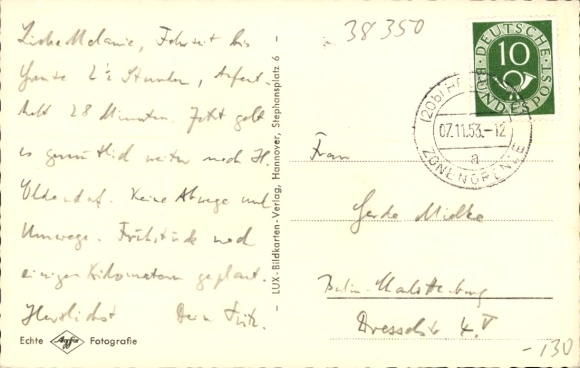 Liebe Melanie, Fahrzeit bis
heute 2½ Stunden, Aufent-
halt 28 Minuten. Jetzt geht
es gemütlich weiter nach H.
Oldendorf. Keine Abwege und
Umwege. Frühstück nach
einigen Kilometern geplant.
Herzlichst Dein Fritz.
Echte Agfa Fotografie
LUX-Bildkarten-Verlag, Hannover, Stephansplatz 6
38350
DEUTSCHE BUNDESPOST
10
(20b)
07.11.53.-12
a
ZONENGRENZE
Frau
Gerda
Berlin-Charlottenburg
4.V
-130